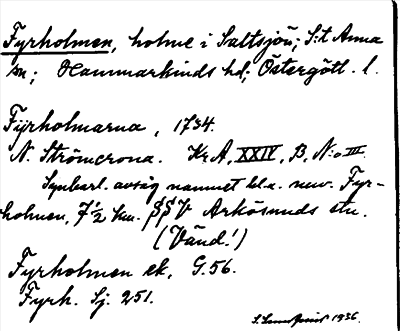 Fyrholmen, holme i Saltsjön; S:t Anna
sn; Hammarkinds hd; Östergötl. l.
Fÿrholmarna, 1734.
N. Strömcrona. Kr. A, XXIV, B, N:o III.
Synbarl. avsåg namnet bl.a. nuv. Fyr-
holmen, 7 1/2 km. SSV Arkösunds stn.
(Vänd!)
Fyrholmen ek. G. 56.
Fyrh. Sj. 251.
1936.